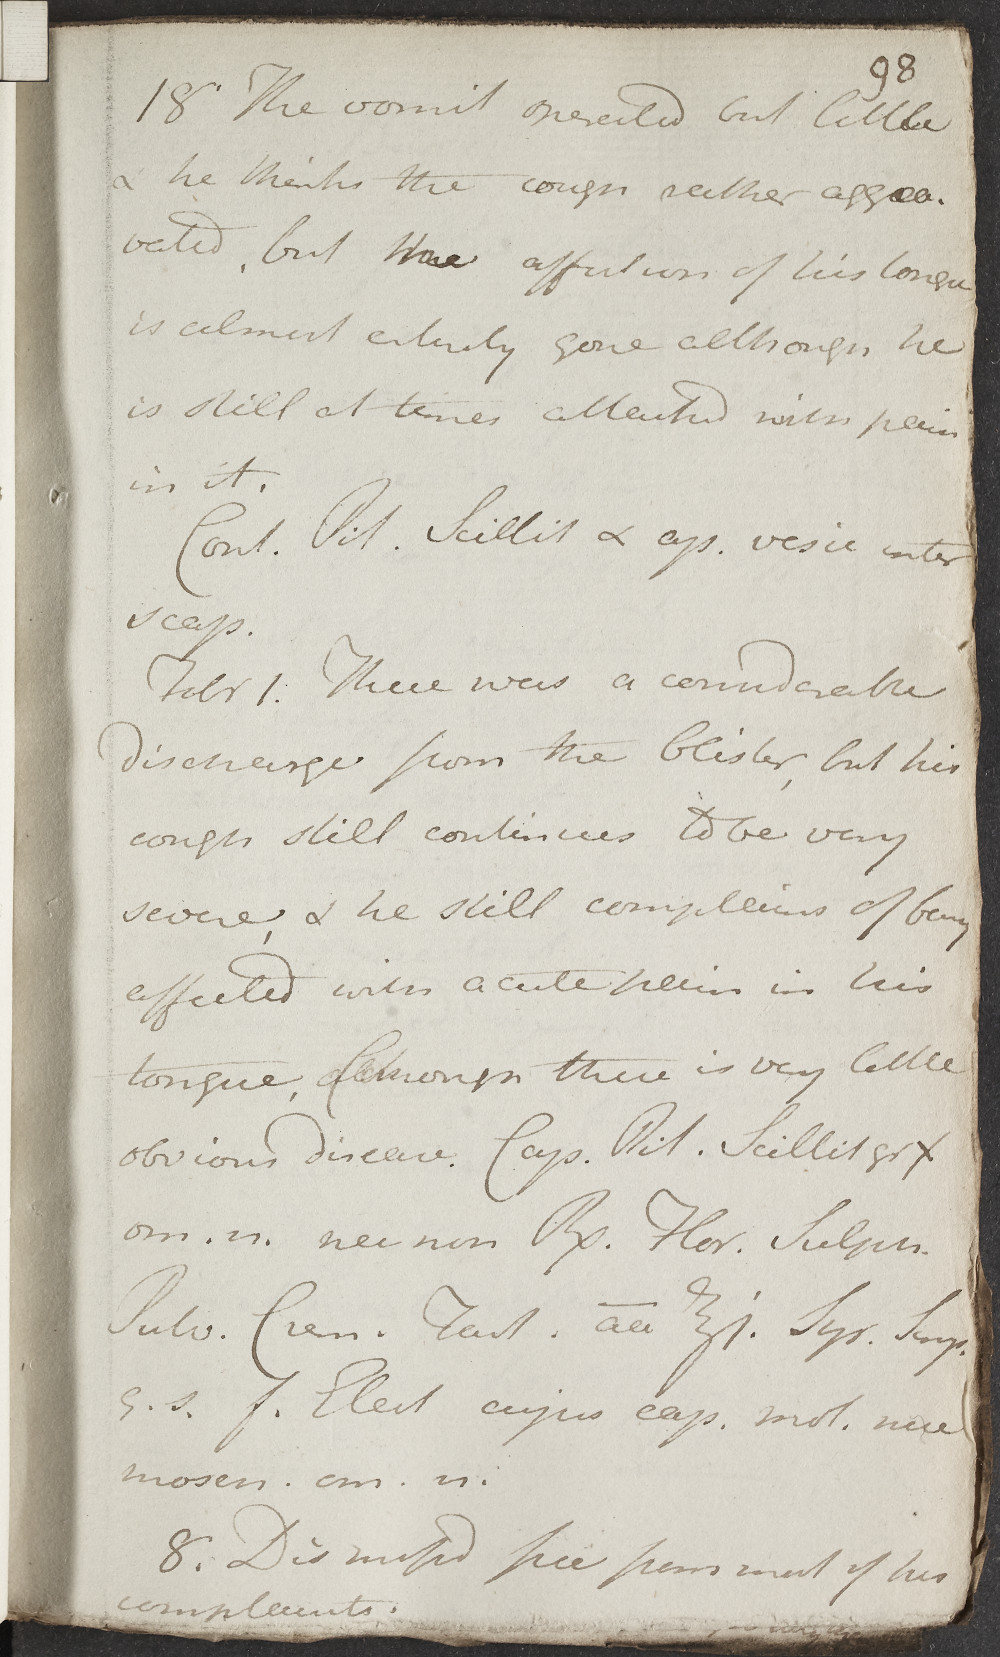 98
18 The vomit operated but little
& he thinks the cough rather aggra-
vated, but the affection of his tongue
is almost entirely gone although he
is still at times attacked with pain
in it.
Cont. Pil. Scillit & ap. vesic inter
scap.
Febr 1. There was a considerable
discharge from the blister, but his
cough still continues to be very
severe, & he still complains of being
affected with acute pain in his
tongue, although there is very little
obvious disease. Cap. Pil. Scillit gr x
om. n. nec non Rx. Flor. Sulph.
Pulv. Crem. Tart. aa ℥j. Syr. Simp.
q. s. f. Elect cujus cap. mol. nuc
mosch. om. n.
8. Dismissd free from most of his
complaints.